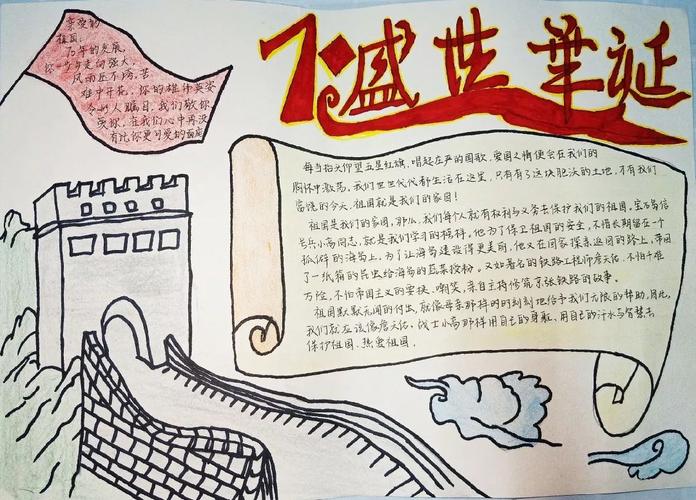 亲爱的
祖国:
70年的发展,
你一步步走向强大,
风雨压不垮,苦
难中开花,你的雄伟英姿
令世人瞩目,我们敬你
爱你,在我们心中再没
有比你更可爱的
70盛世华诞
每当抬头仰望五星红旗,唱起庄严的国歌,爱国之情便会在我们的
胸怀中激荡。我们世世代代都生活在这里,只有有了这块肥沃的土地,才有我们
富饶的今天,祖国就是我们的家园!
祖国是我们的家园,那么,我们每个人就有权利与义务去保护我们的祖国。宝石岛信
号兵小高同志,就是我们学习的榜样。他为了保卫祖国的安全,不惜长期留在一个
孤僻的海岛上,为了让海岛建设得更美丽,他又在回家探亲返回的路上,带回
了一纸箱的昆虫给海岛的蔬菜授粉。又如著名的铁路工程师詹天佑,不怕千难
万险,不怕帝国主义的要挟、嘲笑,亲自主持修筑京张铁路的故事。
祖国默默无闻的付出,就像母亲那样时时刻刻地给予我们无限的帮助,因此,
我们就应该像詹天佑,战士小高那样用自己的身躯,用自己的汗水与智慧去
保护祖国,热爱祖国。